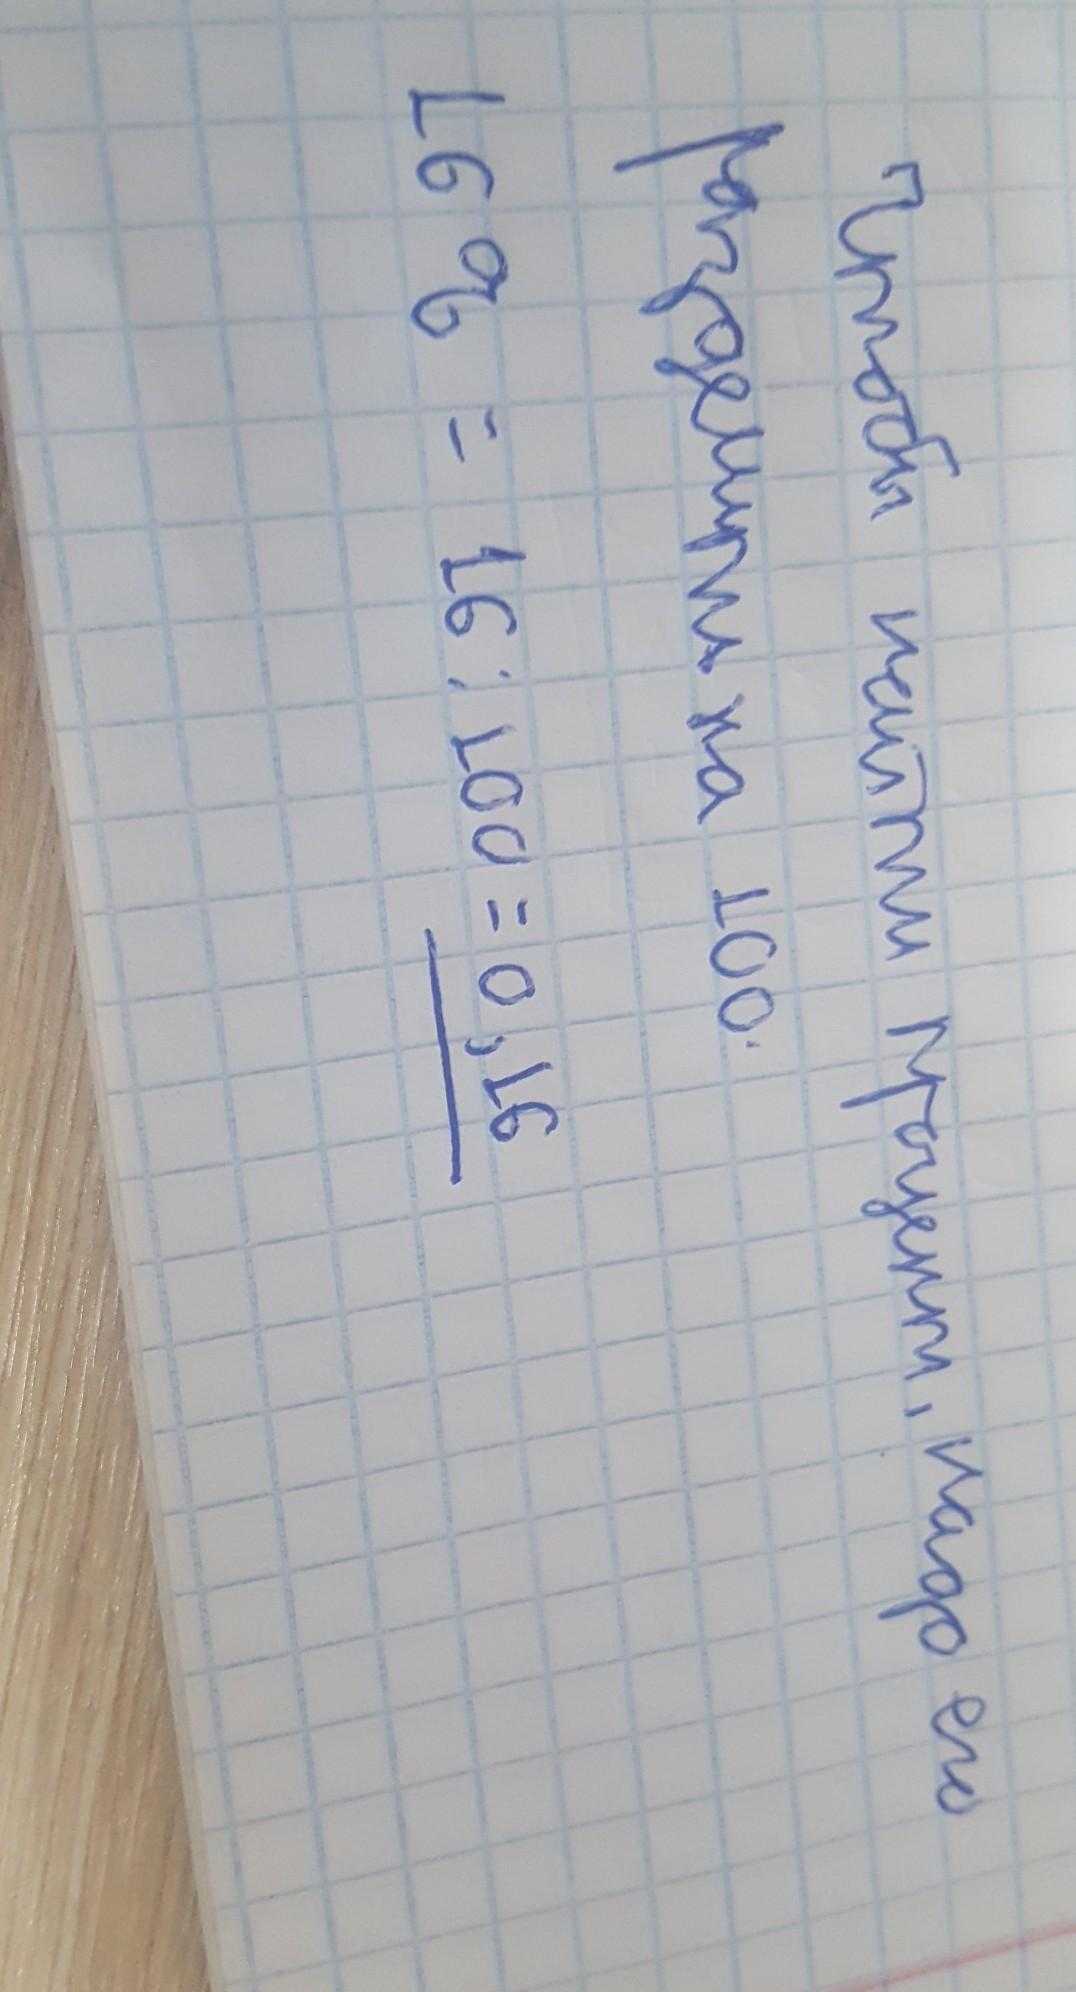 Чтобы найти процент, надо его
разделить на 100.
16 % = 16 : 100 = 0,16